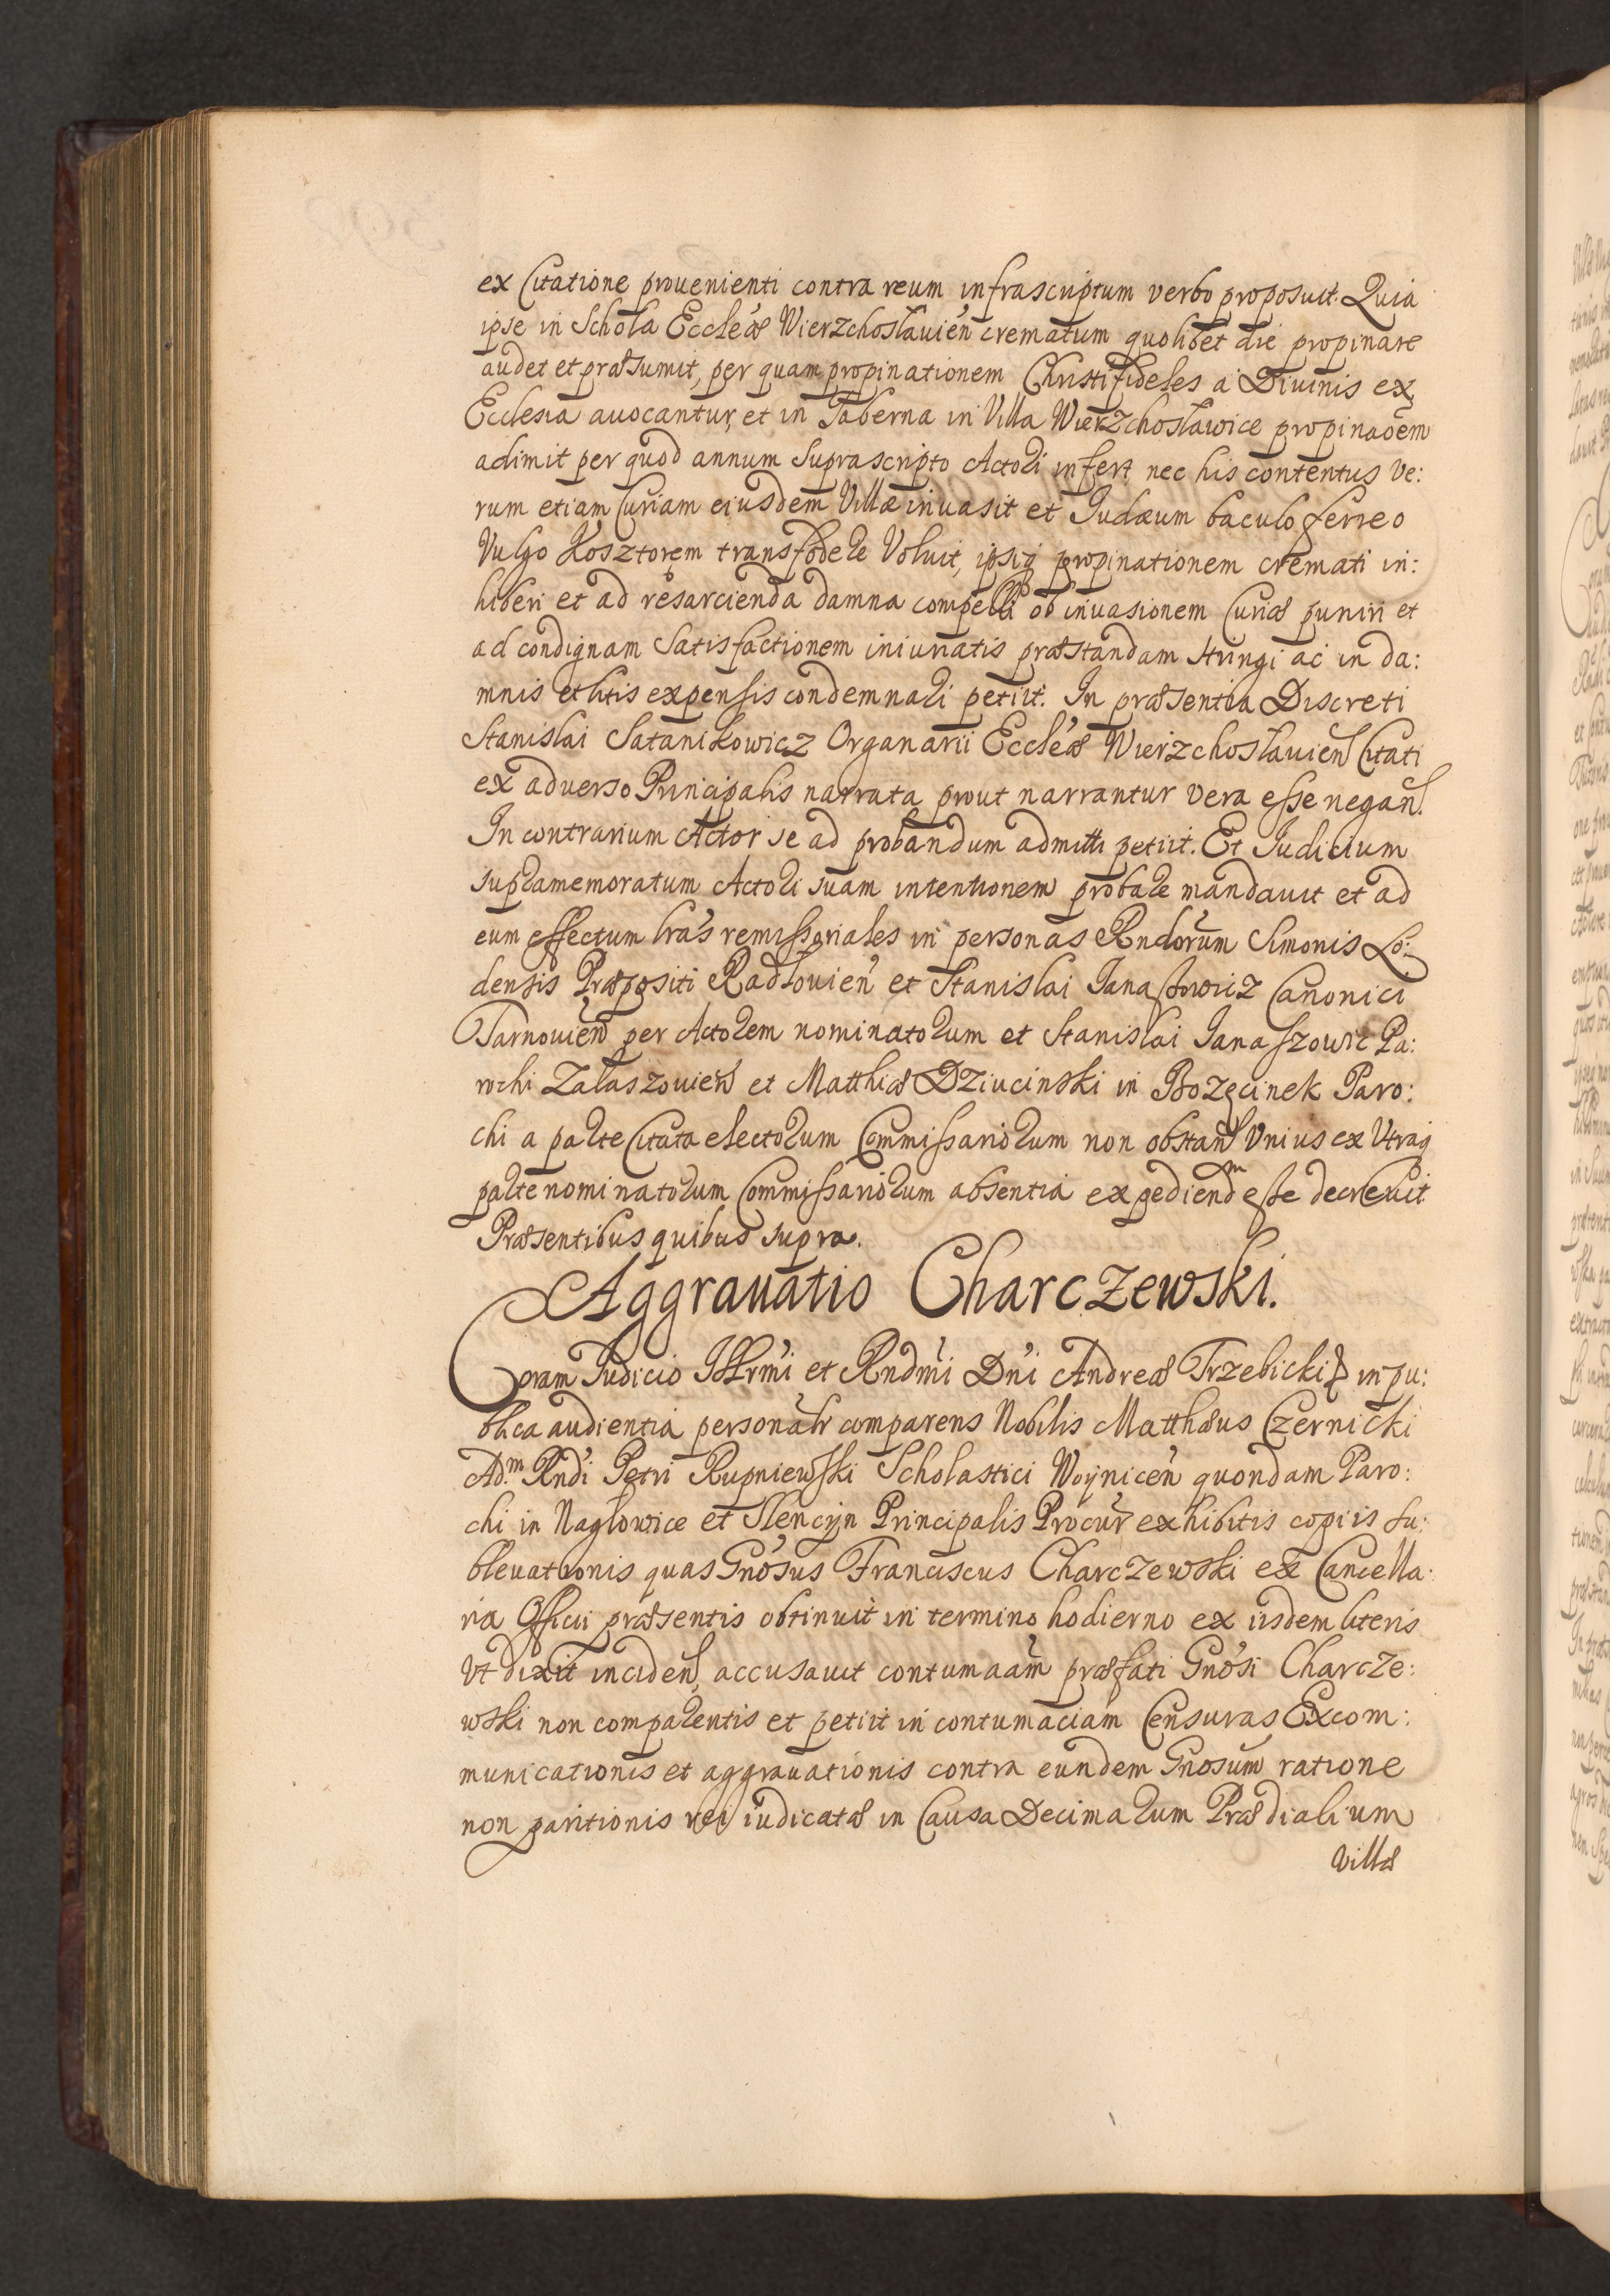 ex Citatione prouenienti contra reum infrascriptum verbo proposuit. Quia
ipse in Schola Eccleæ Wierzchoslauien crematum quolibet die propinare
audet et præsumit, per quam propinationem Christifideles a Diuinis ex
Ecclesia auocantur, et in Taberna in Villa Wierzchosławice propinaõem
adimit per quod annum suprascripto Actori infert nec his contentus ve:
rum etiam Curiam eiusdem Villæ inuasit et Judæum baculo ferreo
Vulgo Kosztorem transfodere Voluit, ipsiq propinationem cremati in:
hiberi et ad resarcienda damna compelli ob inuasionem Curiæ puniri et
ad condignam satisfactionem iniuriatis præstandam stringi ac in da:
mnis et litis expensis condemnari petiit. In præsentia Discreti
Stanislai Satanikowicz Organarii Eccleæ Wierzchoslauien Citati
ex aduerso Principalis narrata prout narrantur vera esse negan.
In contrarium Actor se ad probandum admitti petiit. Et Iudicium
supramemoratum Actori suam intentionem probare mandauit et ad
eum effectum lras remissoriales in personas Rndorum Simonis Lo:
densis Præpositi Radłouien et Stanislai Janaszowicz Canonici
Tarnouien per Actorem nominatorum et Stanislai Janaszowic Pa:
rochi Zalaszouien et Matthiæ Dziucinski in Bozęcinek Paro:
chi a parte Citata electorum Commissariorum non obstan Vnius ex Vtraq
parte nominatorum Commissariorum absentia expediend esse decreuit
Præsentibus quibus supra.
Aggrauatio Charczewski.
Coram Iudicio Illrmi et Rndmi Dni Andreæ Trzebicki in pu:
blica audientia personalr comparens Nobilis Matthæus Czernicki
Adm Rndi Petri Rupniewski Scholastici Woÿnicen quondam Paro:
chi in Nagłowice et Slencÿn Principalis Procur exhibitis copiis su:
bleuationis quas Gnosus Franciscus Charczewski ex Cancella:
ria Officii præsentis obtinuit in termino hodierno ex iisdem literis
Vt dixit inciden, accusauit contumaam præfati Gnosi Charcze:
wski non comparentis et petiit in contumaciam Censuras Excom:
municationis et aggrauationis contra eundem Gnosum ratione
non paritionis rei iudicatæ in Causa Decimarum Prædialium
Villæ